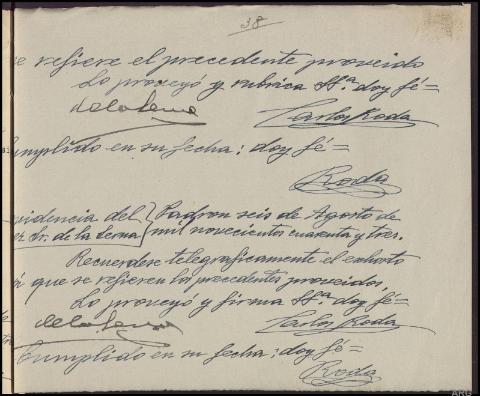 38
se refiere el precedente proveido
Lo proveyó y rubrica Sª. doy fé=
de la Serna
Carlos Roda
Cumplido en su fecha: doy fé=
Roda
videncia del
ez Sr. de la Serna
Padron seis de Agosto de
mil novecientos cuarenta y tres.
Recuerdese telegraficamente el exhorto
á que se refieren los precedentes proveidos,
Lo proveyó y firma Sª. doy fé=
de la Serna
Carlos Roda
Cumplido en su fecha: doy fé=
Roda
ARG